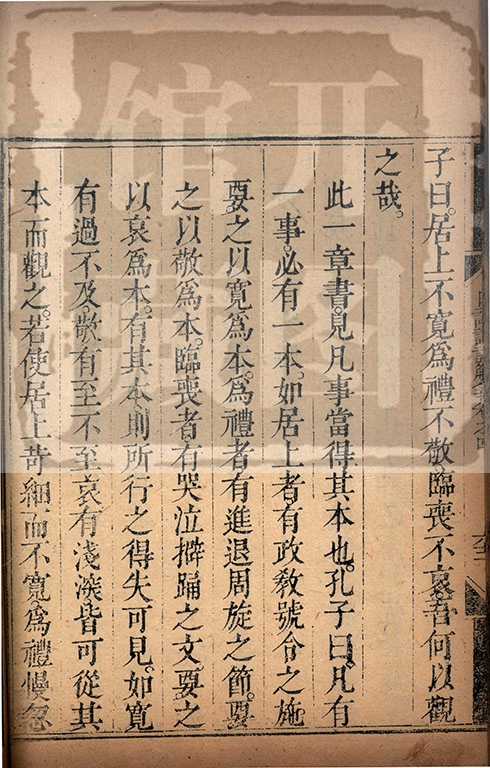 子曰。居上不寬。為禮不敬。臨喪不哀。吾何以觀
之哉。
此一章書。見凡事當得其本也。孔子曰。凡有
一事。必有一本。如居上者有政敎號令之施。
要之以寬為本。為禮者有進退周旋之節。要
之以敬為本。臨喪者有哭泣擗踊之文。要之
以哀為本。有其本則所行之得失可見。如寬
有過不及。敬有至不至。哀有淺深。皆可從其
本而觀之。若使居上苛細而不寬。為禮慢忽
开图
馆藏